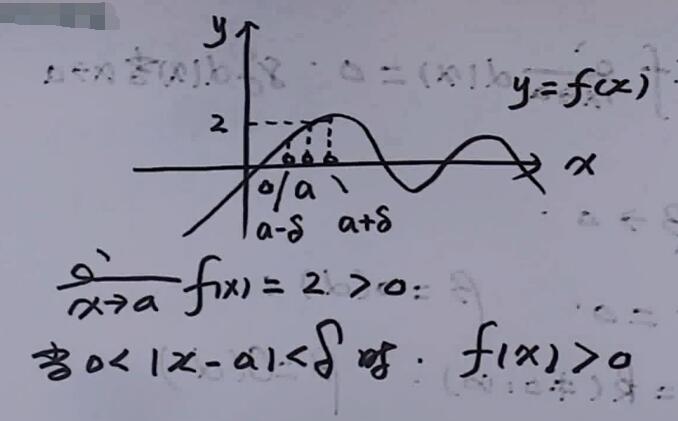 y
y=f(x)
2
x
0 a
a-δ a+δ
x→a f(x)=2>0.
当0<|x-a|<δ时. f(x)>0